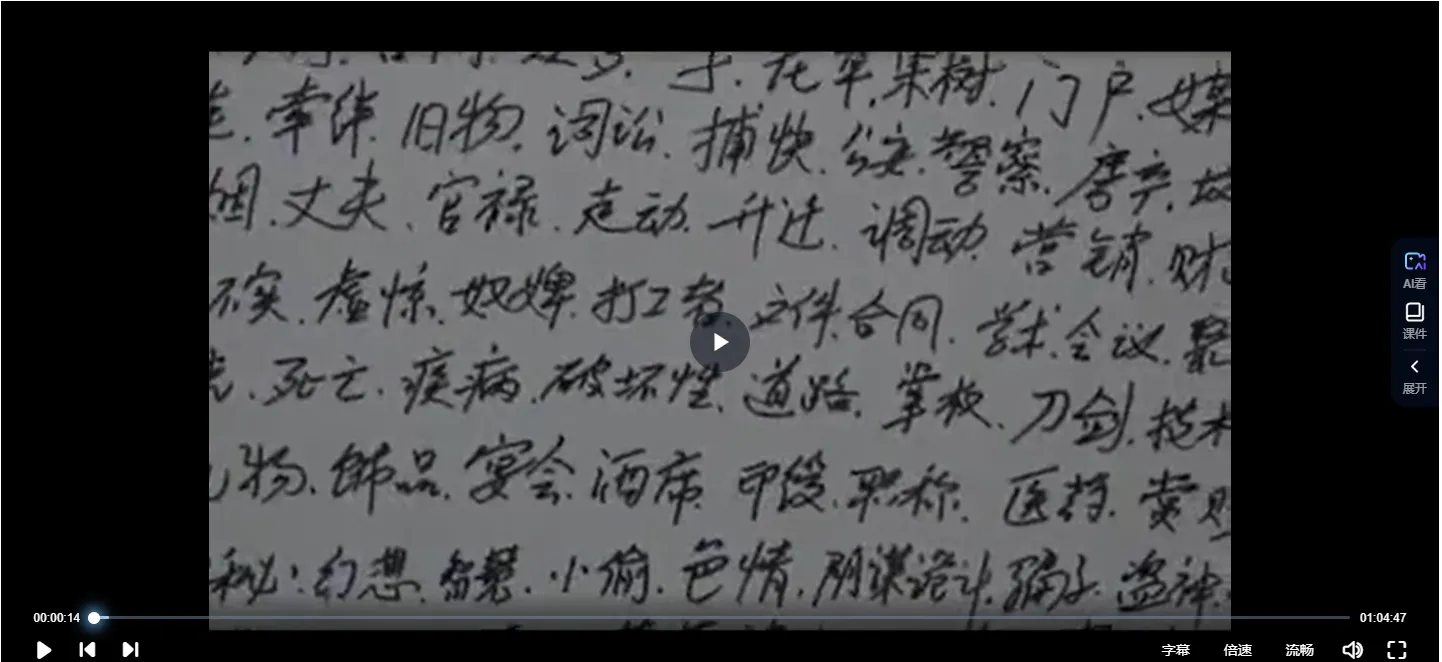 花草.果树.门户.媒
牵绊.旧物.词讼.捕快.公安.警察.房产.故
姻.丈夫.官禄.走动.升迁.调动.营销.财
不实.虚惊.奴婢.打工者.文件.合同.学术.会议.聚
死亡.疾病.破坏性.道路.掌权.刀剑.技术
礼物.饰品.宴会.酒席.印绶.职称.医药.赏财
秘:幻想.智慧.小偷.色情.阴谋诡计.骗子.盗神.
AI看
课件
展开
00:00:14
01:04:47
字幕 倍速 流畅